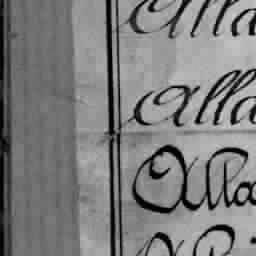 Alla
Alla
Alla